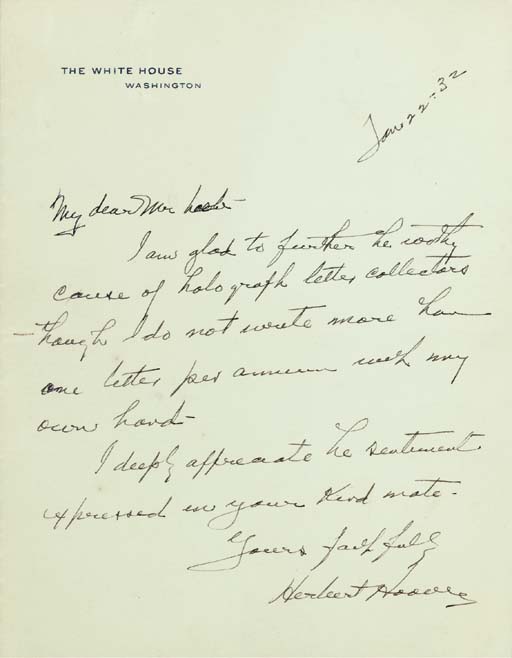 THE WHITE HOUSE
WASHINGTON
Jan 22-32
My dear Mr
I am glad to further the worthy
cause of holograph letter collectors
though I do not write more than
one letter per annum with my
own hand-
I deeply appreciate the sentiment
expressed in your kind note.
Yours faithfully
Herbert Hoover